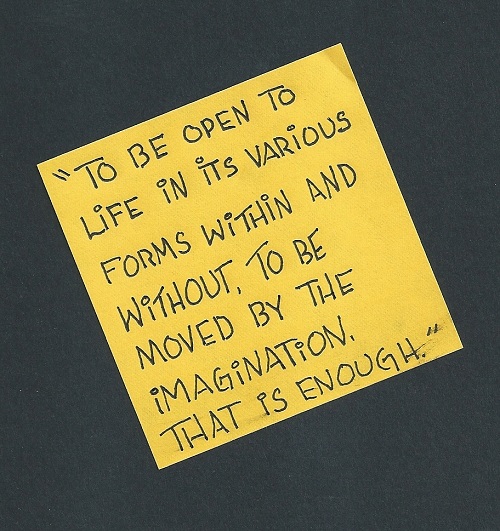 "TO BE OPEN TO
LiFE IN iTS VARIOUS
FORMS WiTHiN AND
WiTHOUT, TO BE
MOVED BY THE
iMAGiNATiON.
THAT iS ENOUGH."